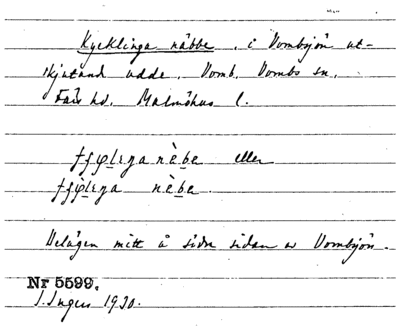 Kycklinga näbbe, i Vombsjön ut-
skjutand udde. Vomb, Vombs sn,
Färs hd. Malmöhus l.
nèbe eller
nèbe.
Belägen mitt å södra sidan av Vombsjön.
Nr 5599.
I. Ingers 1930.